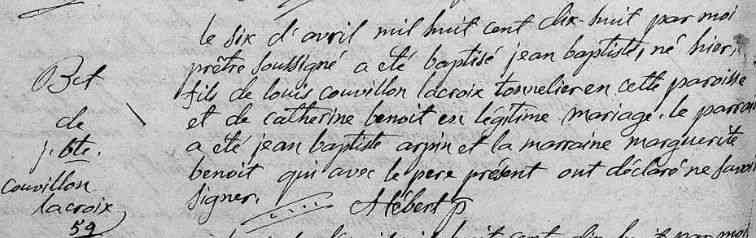 Bet
de
j. bte.
Couvillon
lacroix
59
le six d'avril mil huit cent dix-huit par moi
prêtre soussigné a eté baptisé jean baptiste, né hier,
fils de louis couvillon lacroix tonnelier en cette paroisse
et de catherine benoit en légitime mariage. le parrain
a eté jean baptiste arpin et la marraine marguerite
benoit qui avec le pere présent ont déclaré ne savoir
signer. Hébert p
huit cent dix huit par moi